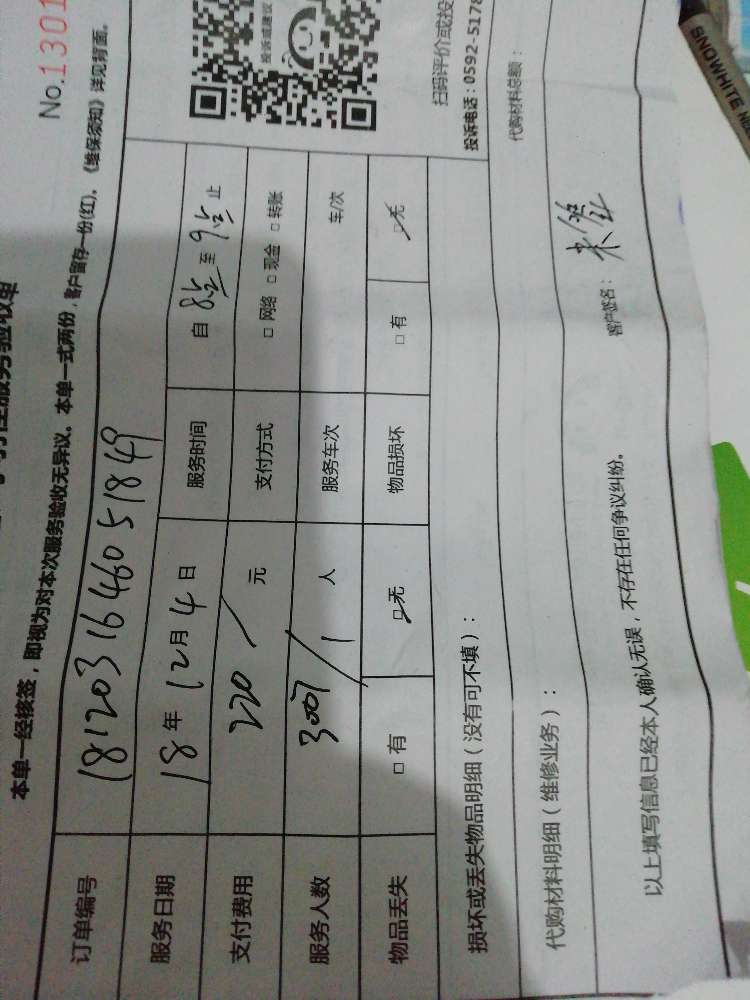 No.1301
本单一经核签，即视为对本次服务验收无异议。本单一式两份，客户留存一份(红)。《维保须知》详见背面。
投诉或建议
订单编号 1812031646051849
服务日期 18年12月4日 服务时间 自 8点 至 9点 止
支付费用 220 元 支付方式 □ 网络 □ 现金 □ 转账
服务人数 1 人 服务车次 车/次
物品丢失 □ 有 □ 无 物品损坏 □ 有 □ 无
扫码评价或投
投诉电话：0592-5178
损坏或丢失物品明细（没有可不填）：
代购材料明细（维修业务）： 代购材料总额：
以上填写信息已经本人确认无误，不存在任何争议纠纷。
客户签名：
SNOWHITE